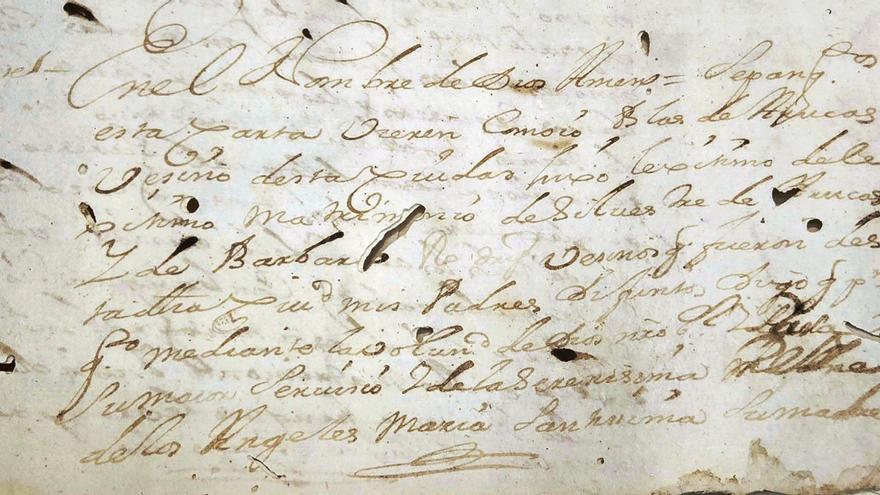 En el Nombre de Dios Amen = Sepan q.tos
esta Carta Vieren Como io Blas de Arucas
Vesino desta Ciudad hijo lexitimo de le
xitimo Matrimonio de Silvestre de Arucas
Y de Barbara Vesinos q fueron des
ta dha Ciud mis Padres Difuntos Digo q p.r
q.to mediante la Volund de Dios nro
Su maior Servicio Y de la Serenisima Reina
de los Angeles Maria Santisima Su madre